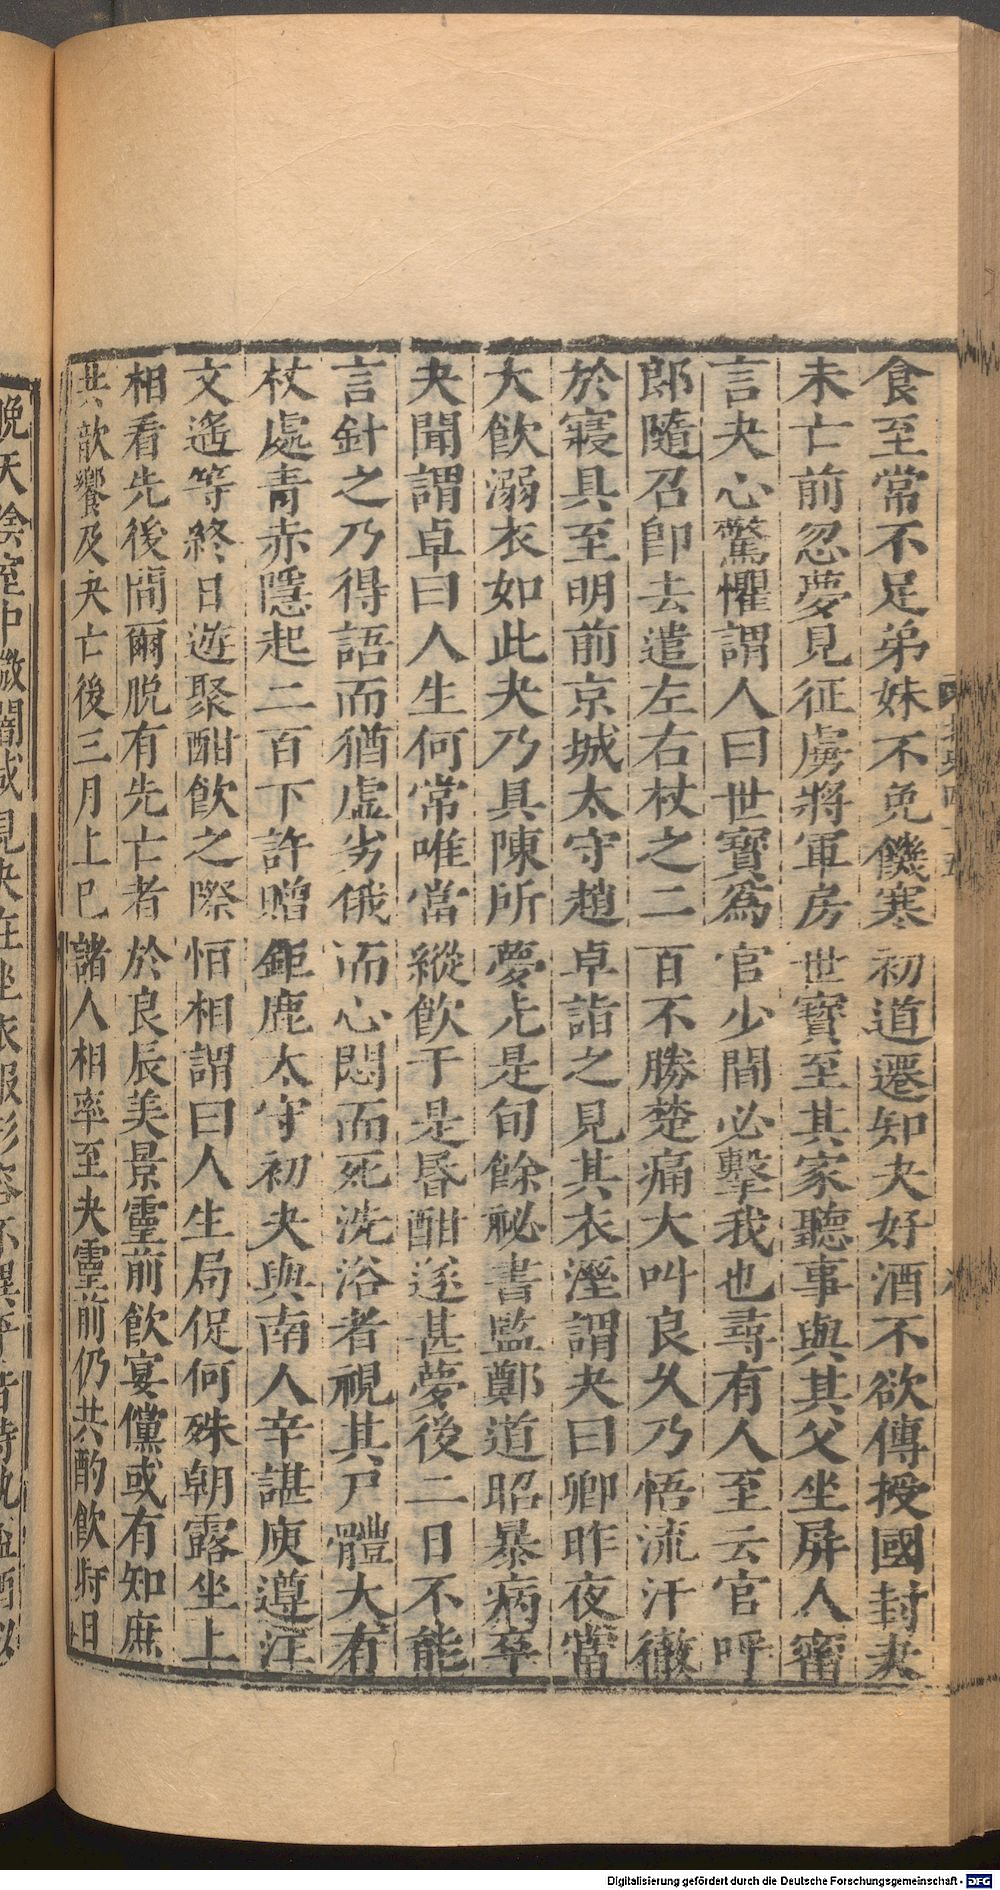 食至常不足弟妹不免饑寒初道遷知夬好酒不欲傳授國封夬
未亡前忽夢見征虜將軍房世寶至其家聽事與其父坐屏人密
言夬心驚懼謂人曰世寶為官少間必擊我也尋有人至云官呼
郎隨召卽去遣左右杖之二百不勝楚痛大叫良久乃悟流汗徹
於寢具至明前京城太守趙卓詣之見其衣溼謂夬曰卿昨夜當
大飲溺衣如此夬乃具陳所夢先是旬餘祕書監鄭道昭暴病卒
夬聞謂卓曰人生何常唯當縱飲于是昏酣遂甚夢後二日不能
言針之乃得語而猶虛劣俄而心悶而死洗浴者視其尸體大有
杖處青赤隱起二百下許贈鉅鹿太守初夬與南人辛諶庾遵江
文遙等終日遊聚酣飲之際恒相謂曰人生局促何殊朝露坐上
相看先後間爾脫有先亡者於良辰美景靈前飲宴儻或有知庶
共歆饗及夬亡後三月上巳諸人相率至夬靈前仍共酌飲時日
晚天陰室中微闇咸見夬在坐衣服形容不異平昔時執盃酒似
Digitalisierung gefördert durch die Deutsche Forschungsgemeinschaft - DFG